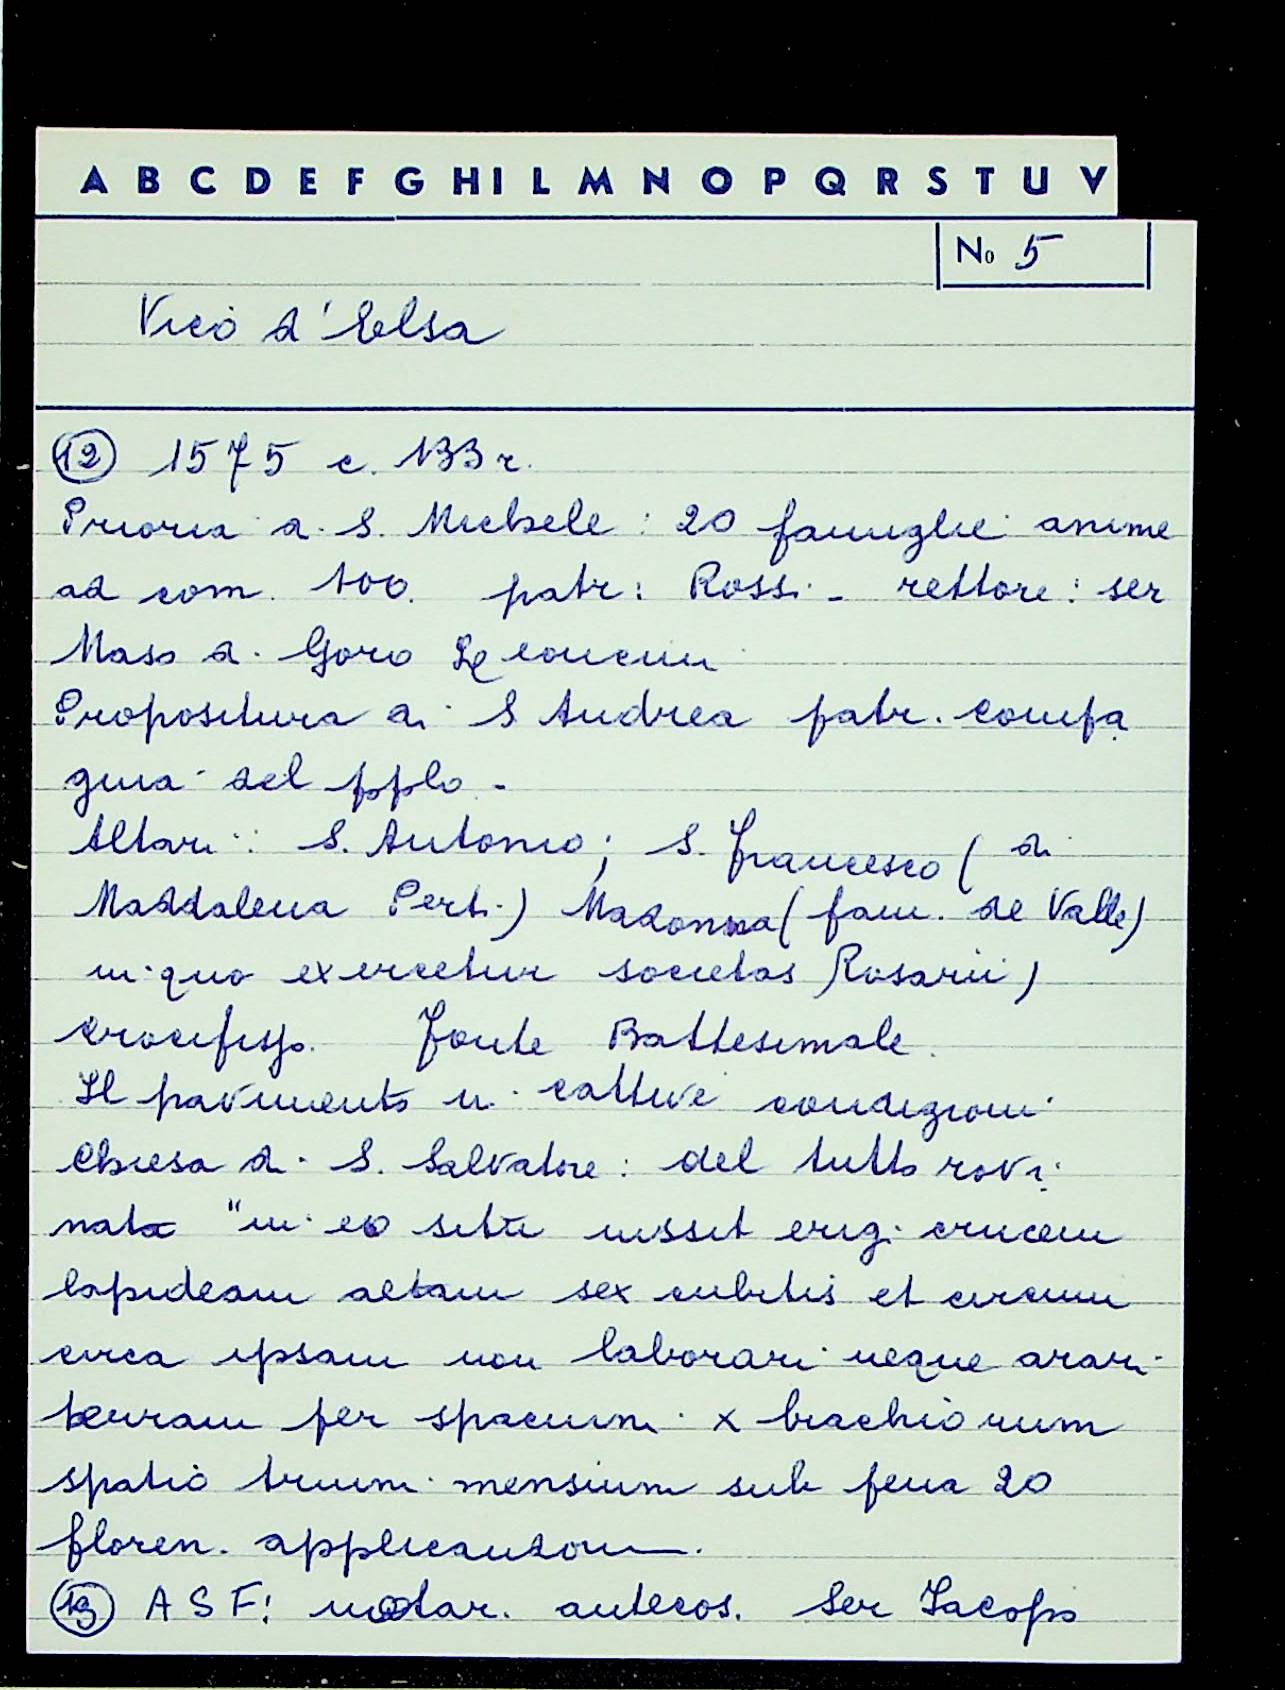 A B C D E F G H I L M N O P Q R S T U V
No 5
Vico d'Elsa
12 1575 c. 133 r.
Prioria di S. Michele: 20 famiglie anime
ad com. 100. patr: Rossi - rettore: ser
Maso di Goro
Propositura di S Andrea patr. compa
gnia del pplo -
Altari: S. Antonio; S. Francesco (di
Maddalena Perti) Madonna (fam. de Valle)
in quo exercetur societas Rosarii)
crocifisso. Fonte Battesimale.
Il pavimento in cattive condizioni
Chiesa di S. Salvatore: del tutto rovi
nata "in eo situ iussit erigi crucem
lapideam altam sex cubitis et circum
circa ipsam non laborari neque arari
terram per spacium x brachiorum
spatio trium mensium sub pena 20
floren. applicandorum.
13 ASF: notar. antecos. Ser Iacopo